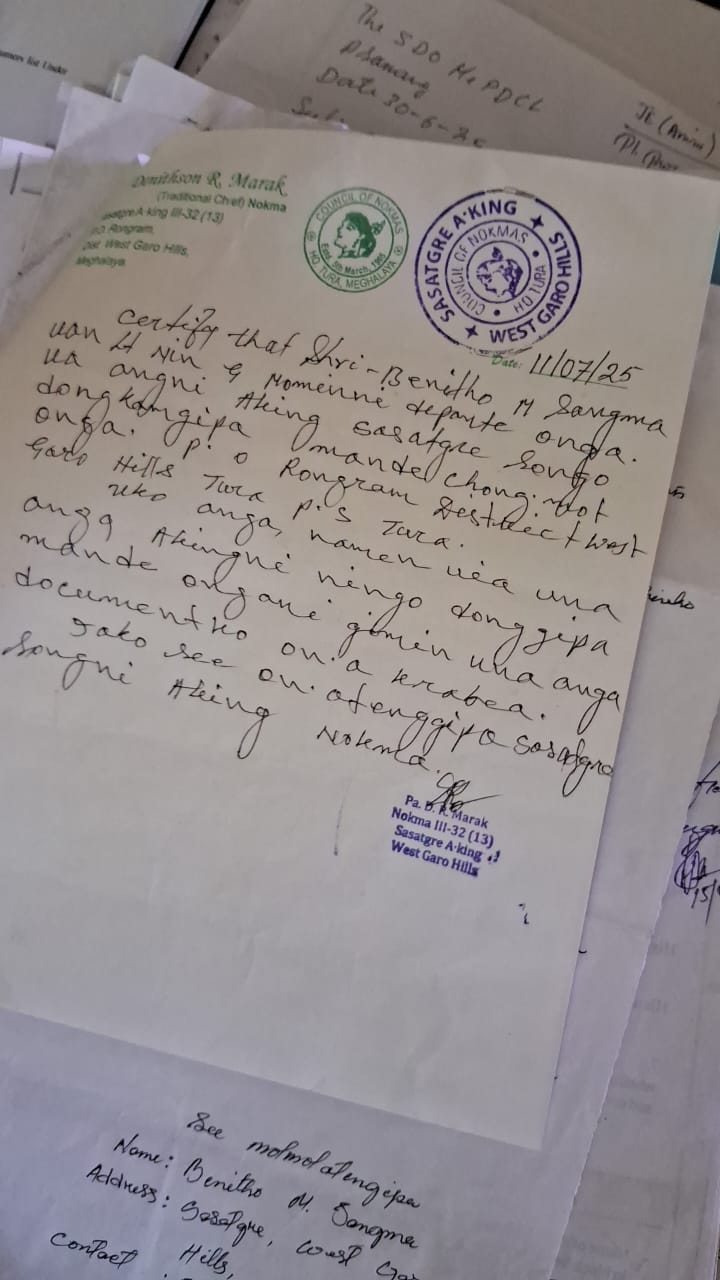 The SDO MePDCL
Date 30-6-25
JE (
Denithson R. Marak
(Traditional Chief) Nokma
A·king III-32 (13)
Rongram,
West Garo Hills,
Meghalaya
COUNCIL OF NOKMAS
Estd. 5th March, 1965
HO. TURA, MEGHALAYA
SASATGRE A·KING
WEST GARO HILLS
COUNCIL OF NOKMAS
HO TURA
Date: 11/07/25
Certify that Shri-Benitho M Sangma
ua angni Aking Sasatgre Songo
dongkangipa mande chong·mot
onga. P. O Rongram District West
Garo Hills Tura P. S Tura.
Uko anga, namen uia una
anga Akingni ningo donggipa
mande ongani gimin una anga
documentko on·a krabea.
Iako see on·atenggipa Sasatgre
Songni Aking Nokma.
Pa. D. R. Marak
Nokma III-32 (13)
Sasatgre A·king
West Garo Hills
See molmolatengipa
Name: Benitho M. Sangma
Address: Sasatgre, West
Hills,
Contact